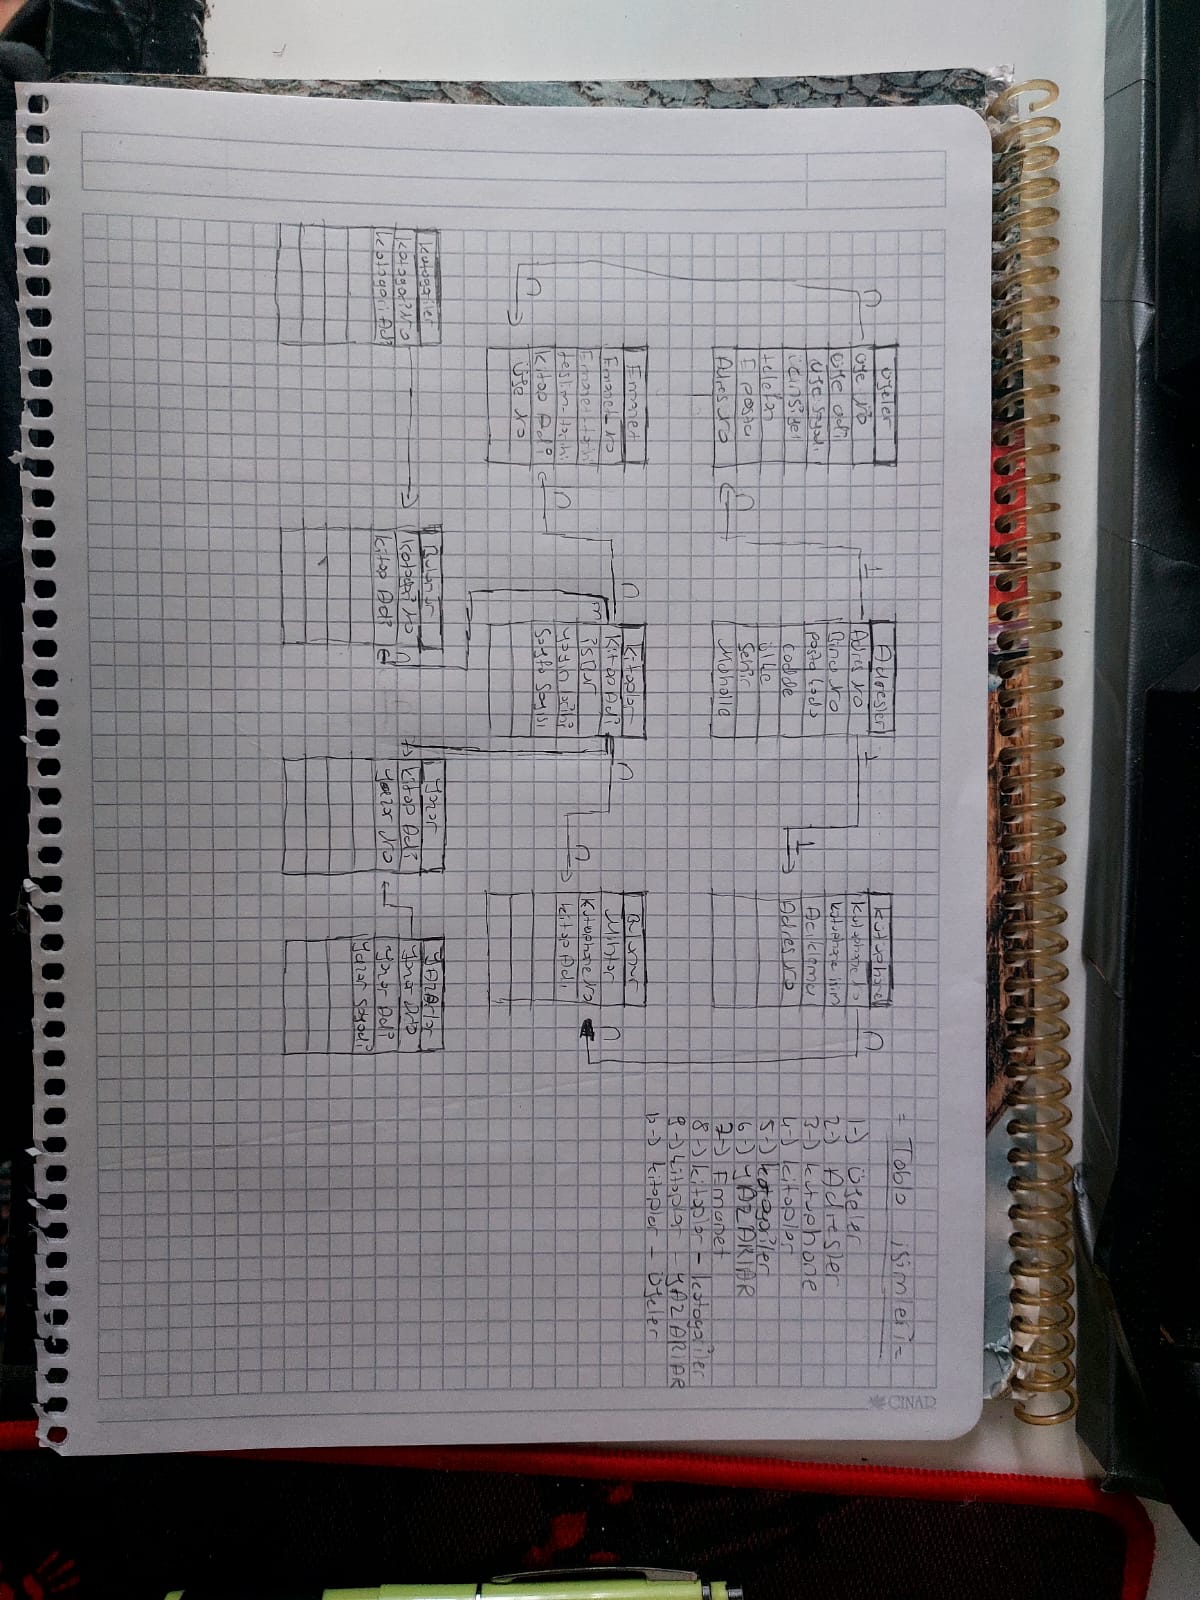 Üyeler
üye no
üye adı
üye soyadı
cinsiyet
telefon
E posta
Adres no
Adresler
Adres no
Bina no
posta kodu
cadde
ülke
Şehir
Mahalle
kütüphane
kütüphane no
kütüphane isim
Aciklama
Adres no
n
n
1
1
1
n
Emanet
Emanet_no
Emanet tarihi
teslim tarihi
kitap Adı
üye no
kitaplar
kitap Adı
ISBN
yayın tarihi
Sayfa Sayısı
Bulunur
Miktar
kütüphane no
kitap Adı
n
n
n
m
n
n
n
kategoriler
kategori no
kategori Adı
Bulunur
kategori no
kitap Adı
n
yazar
kitap Adı
yazar no
YAZArlar
yazar no
yazar Adı
yazar soyadı
= Tablo isimleri =
1-) Üyeler
2-) Adresler
3-) kütüphane
4-) kitaplar
5-) kategoriler
6-) YAZARLAR
7-) Emanet
8-) kitaplar - kategoriler
9-) kitaplar - YAZARLAR
10-) kitaplar - Üyeler
ÇINAR